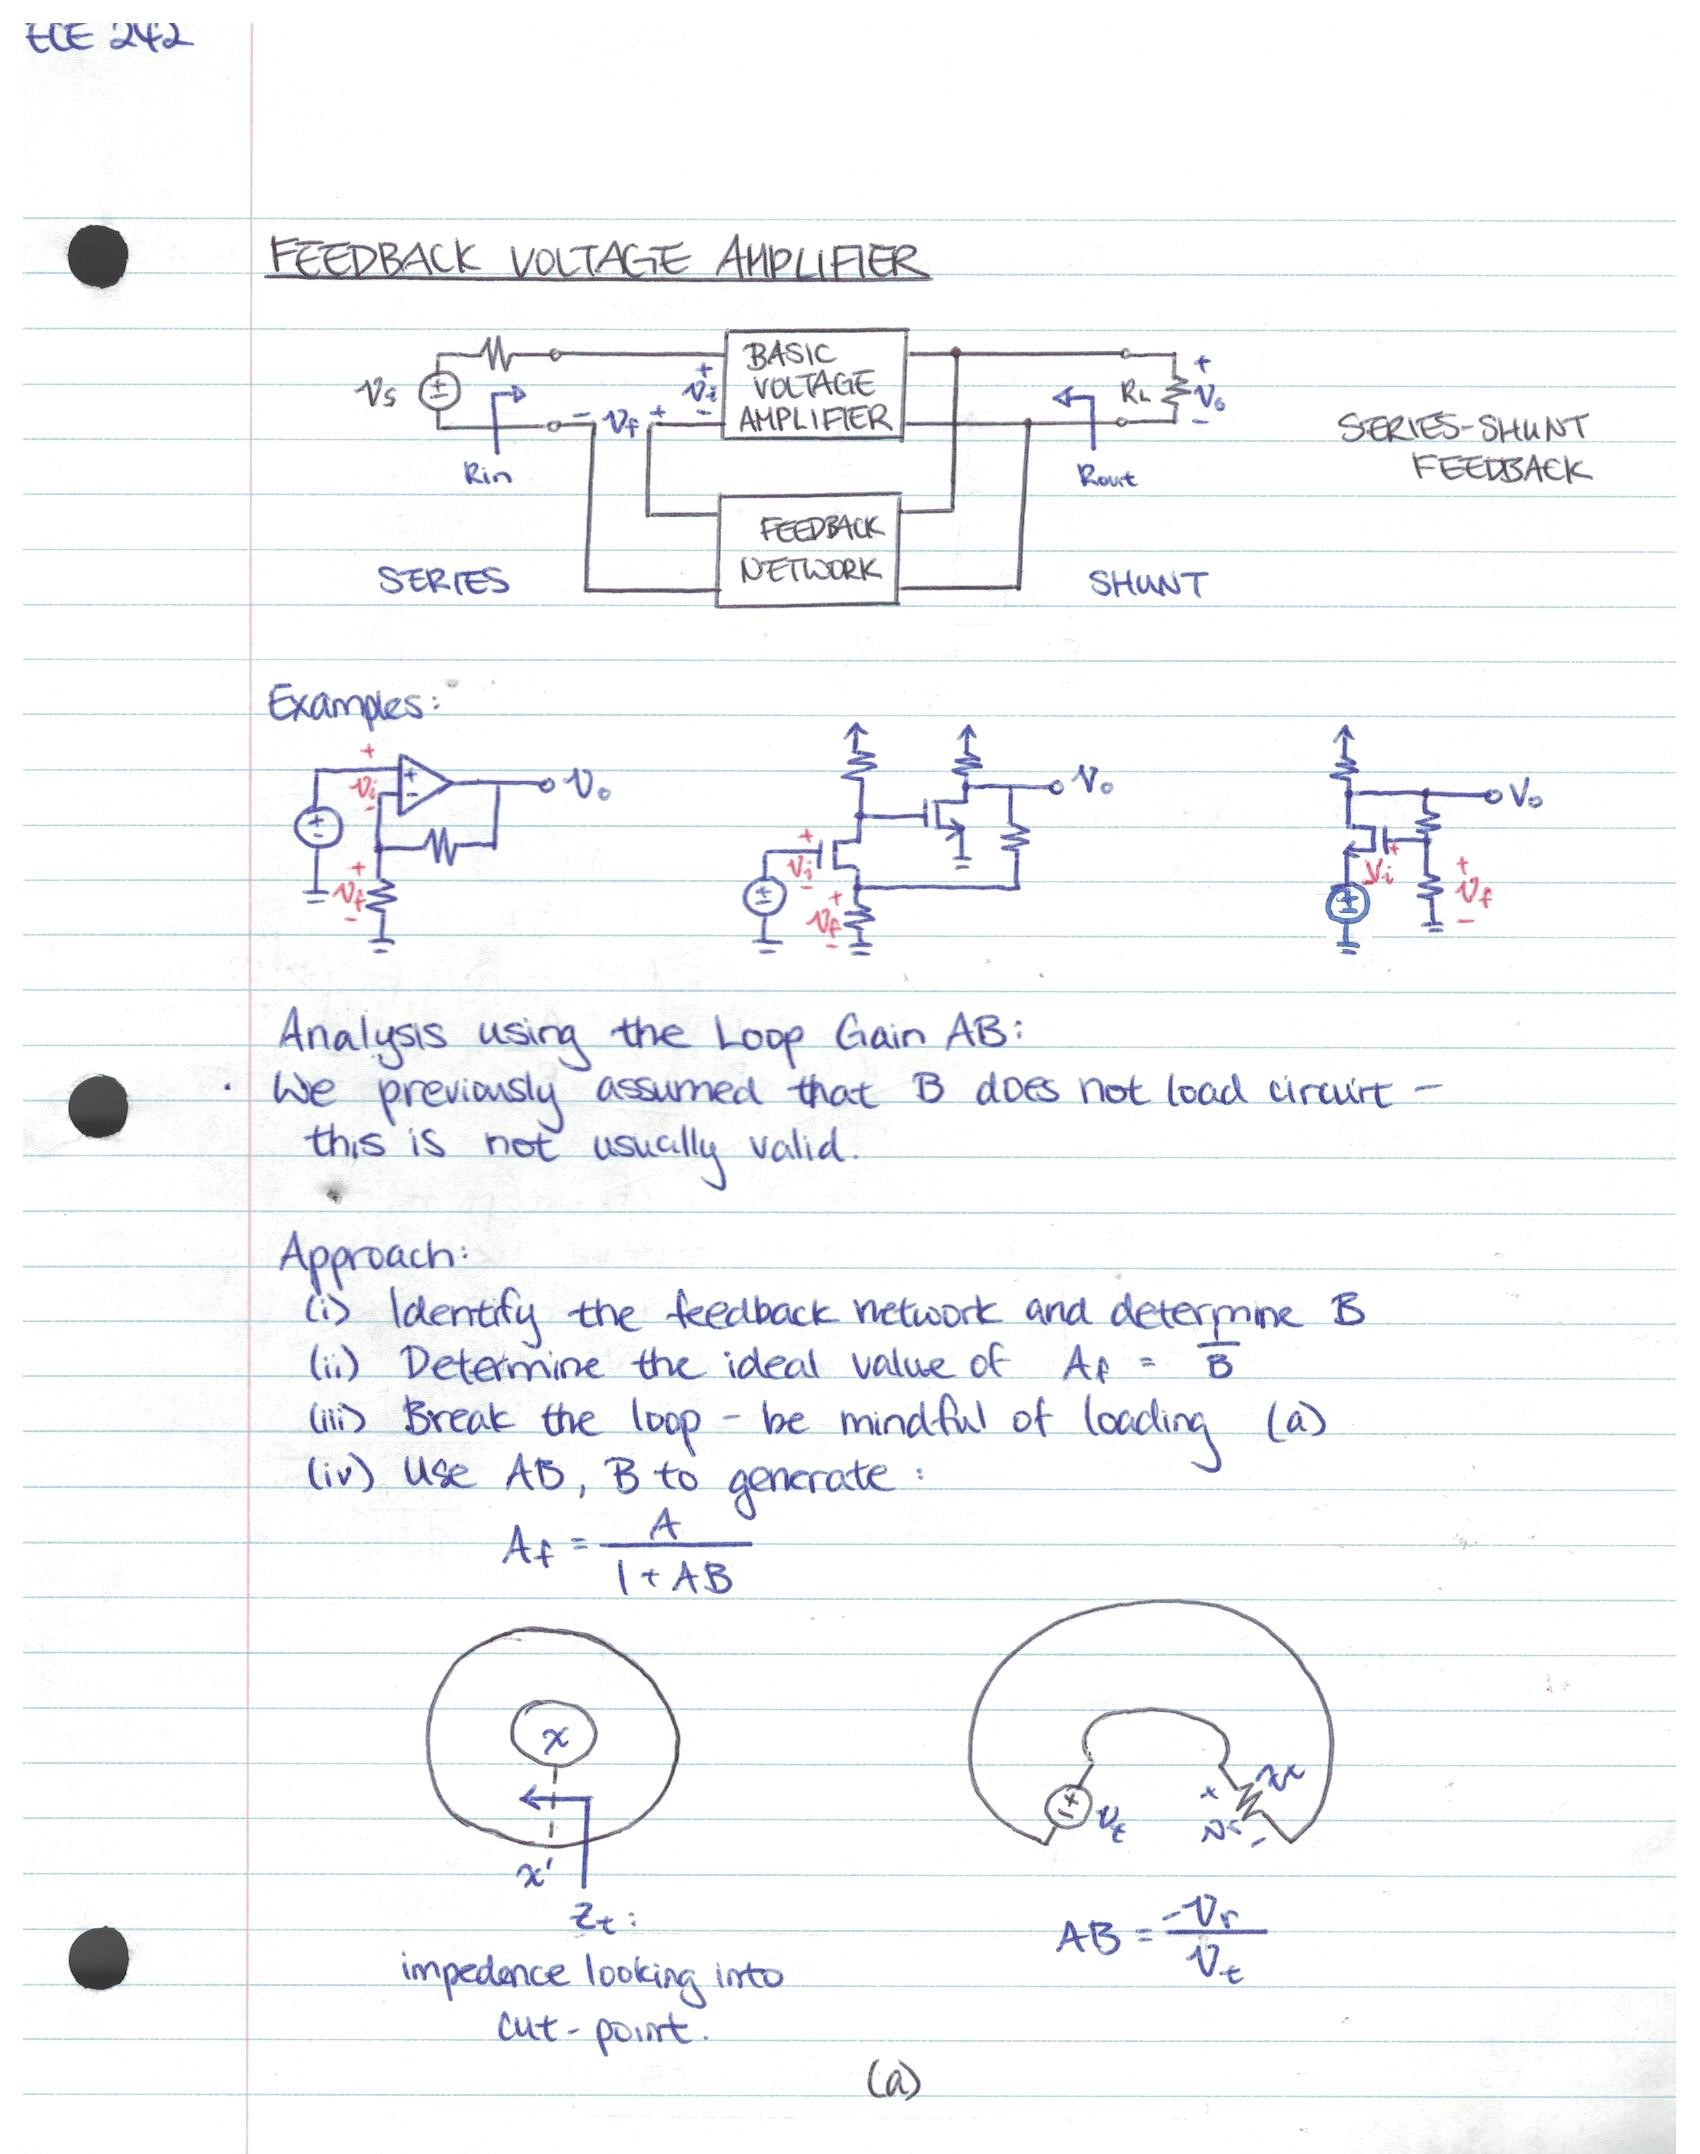 ECE 242
FEEDBACK VOLTAGE AMPLIFIER
Vs
+
-
Rin
- Vf +
+
Vi
-
BASIC
VOLTAGE
AMPLIFIER
RL
+
Vo
-
Rout
SERIES-SHUNT
FEEDBACK
FEEDBACK
NETWORK
SERIES
SHUNT
Examples:
+
Vi
-
+
-
Vo
+
Vf
-
+
Vi
-
Vo
+
Vf
-
Vo
+
Vi
+
Vf
-
Analysis using the Loop Gain AB:
· We previously assumed that B does not load circuit -
this is not usually valid.
Approach:
(i) Identify the feedback network and determine B
(ii) Determine the ideal value of Af = 1/B
(iii) Break the loop - be mindful of loading (a)
(iv) Use AB, B to generate:
Af = A / 1 + AB
x
x'
Zt:
impedence looking into
cut-point.
+
-
Vt
+
Vr
-
Zt
AB = -Vr / Vt
(a)